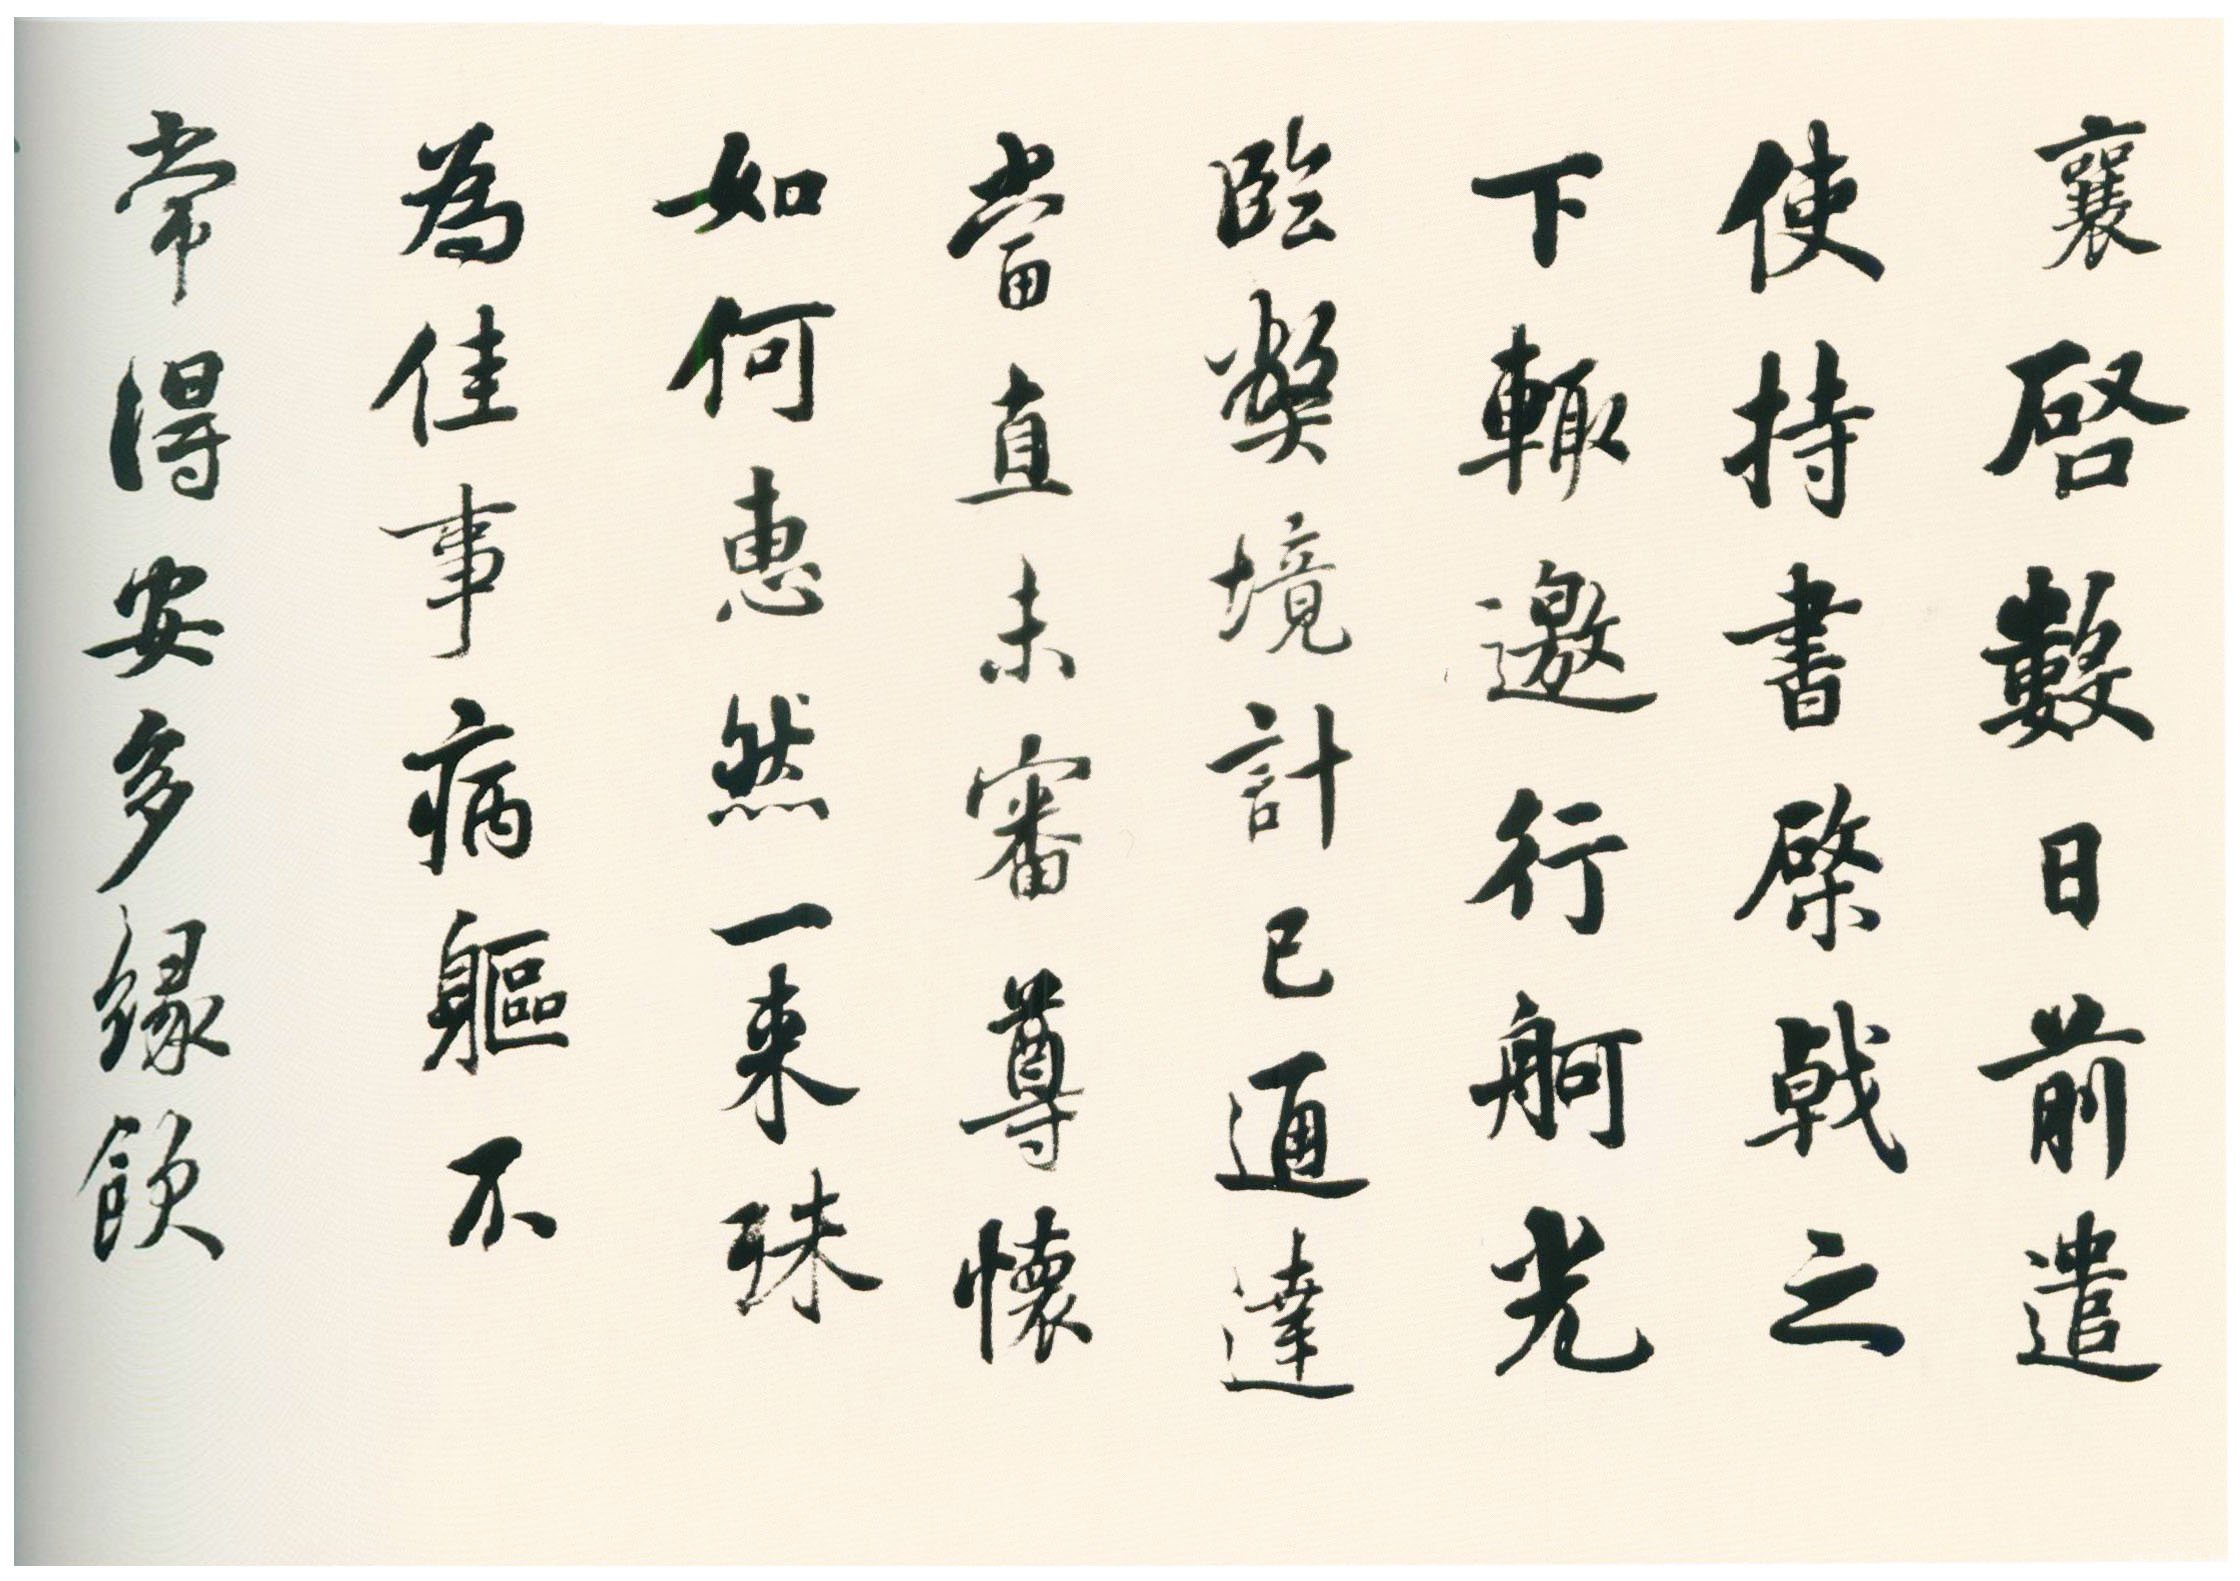 襄啓數日前遣
使持書棨戟之
下輙邀行舸光
臨獘境計已通達
當直未審尊懷
如何惠然一来殊
為佳事病軀不
常得安多緣飲